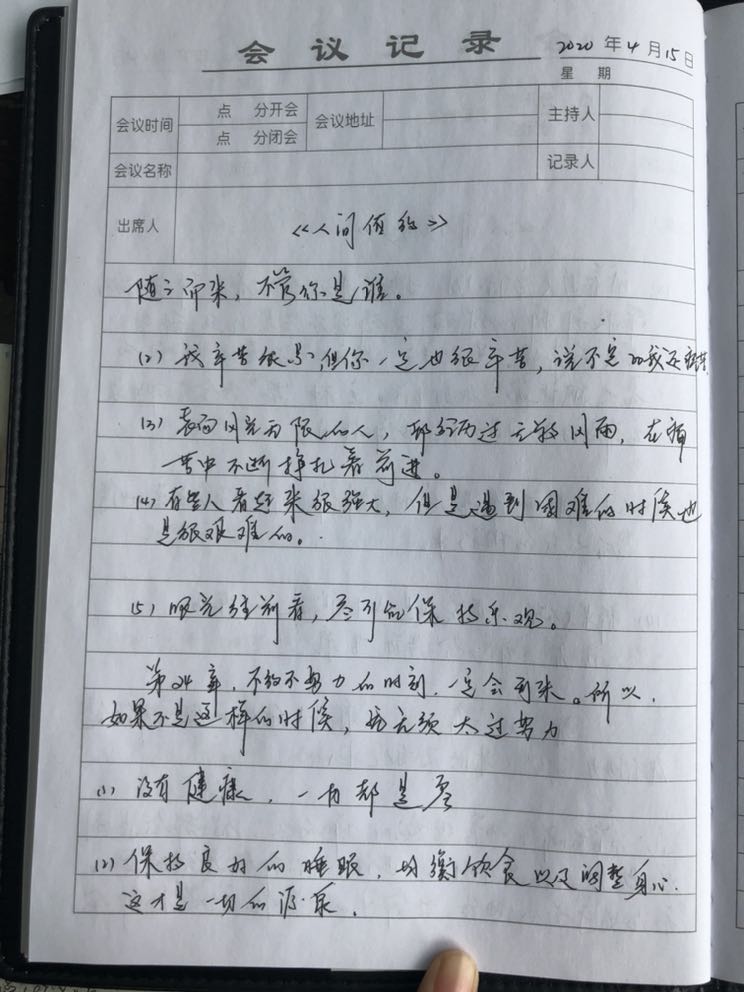 会议记录
2020年4月15日
星 期
会议时间 点 分开会 会议地址 主持人
点 分闭会
会议名称 记录人
出席人
《人间值得》
随之而来，不管你是谁。
(2) 我辛苦很累，但你一定也很辛苦，说不定比我还辛苦
(3) 表面风光无限的人，都经历过无数风雨，在痛
苦中不断挣扎着前进。
(4) 有些人看起来很强大，但是遇到困难的时候也
是很艰难的。
(5) 眼光往前看，尽可能保持乐观。
第24章，不得不努力的时刻，一定会到来。所以，
如果不是这样的时候，你无须太过努力
(1) 没有健康，一切都是零
(2) 保持良好的睡眠，均衡饮食以及调整身心.
这才是一切的源泉.